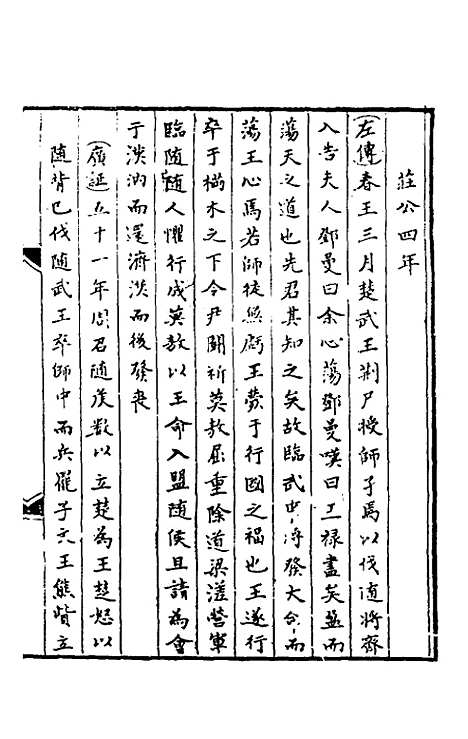 莊公四年
(左傳)春王三月楚武王荆尸授師孑焉以伐随將齊
入告夫人鄧曼曰余心蕩鄧曼嘆曰王禄盡矣盈而
蕩天之道也先君其知之矣故臨武事將發大命而
蕩王心焉若師徒無虧王薨于行國之福也王遂行
卒于樠木之下令尹鬬祈莫敖屈重除道梁溠營軍
臨随随人懼行成莫敖以王命入盟随侯且請為會
于漢汭而還濟漢而後發丧
(廣証)五十一年周召随侯数以立楚為王楚怒以
随背已伐随武王卒師中而兵罷子文王熊貲立